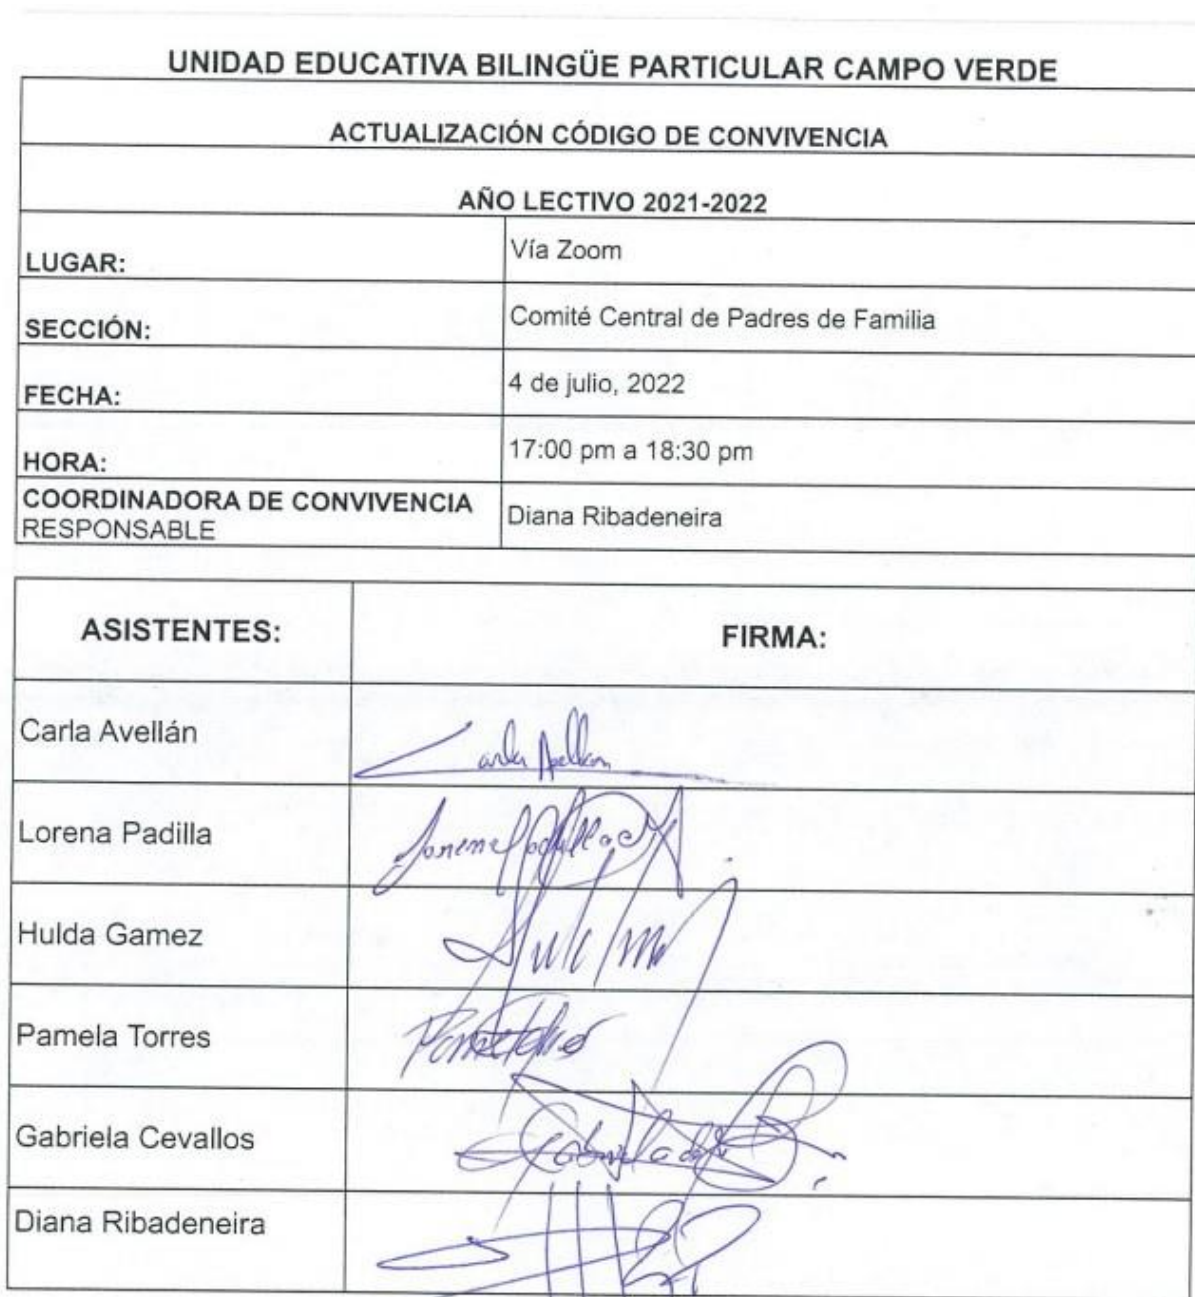 UNIDAD EDUCATIVA BILINGÜE PARTICULAR CAMPO VERDE
ACTUALIZACIÓN CÓDIGO DE CONVIVENCIA
AÑO LECTIVO 2021-2022
LUGAR: Vía Zoom
SECCIÓN: Comité Central de Padres de Familia
FECHA: 4 de julio, 2022
HORA: 17:00 pm a 18:30 pm
COORDINADORA DE CONVIVENCIA
RESPONSABLE Diana Ribadeneira
ASISTENTES: FIRMA:
Carla Avellán Carla Avellan
Lorena Padilla
Hulda Gamez
Pamela Torres
Gabriela Cevallos
Diana Ribadeneira